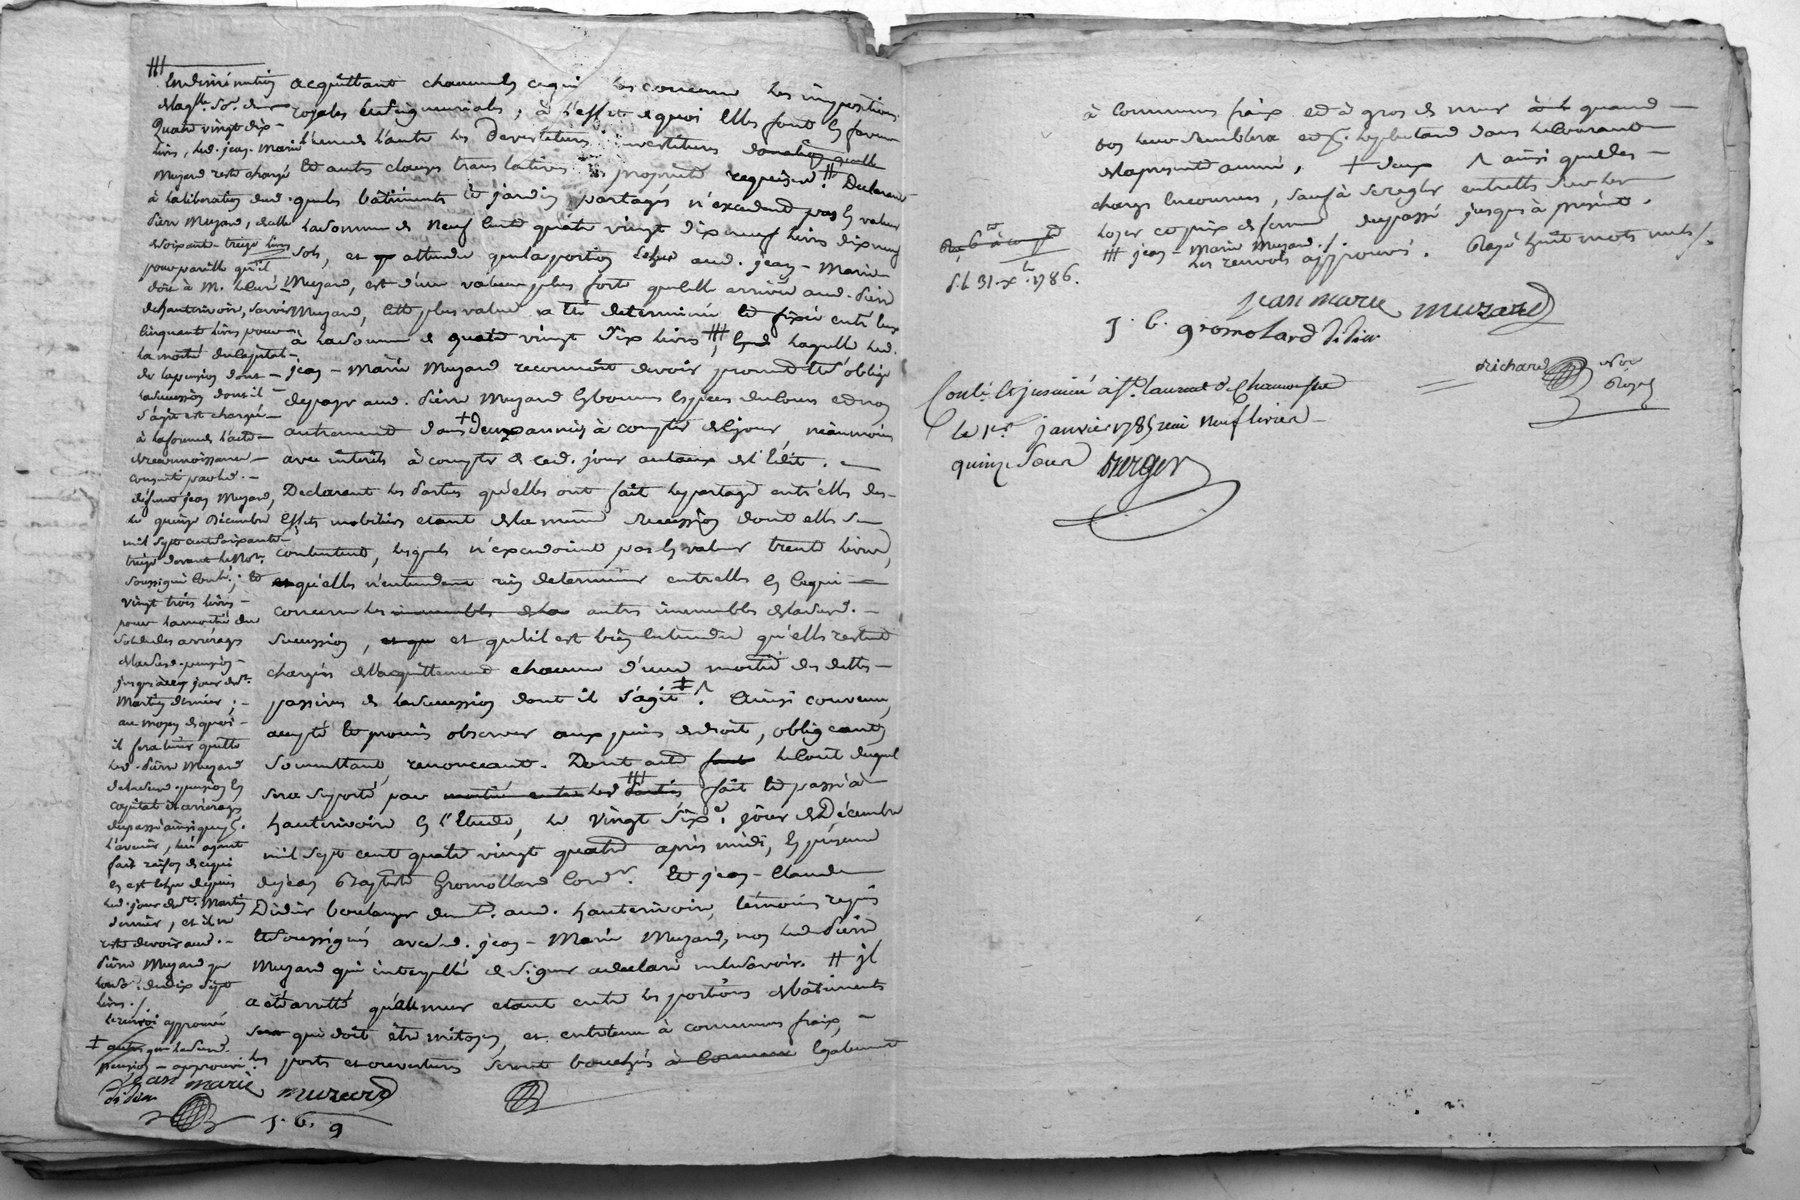 acquittant chacun de ce qui les concerne les impositions
royales et seigneuriales, à l'effet de quoi elles font en faveur
l'une de l'autre les devestitures investitures
et autres clauses translatives de propriété requises. # Declarant
que les bâtiments et jardin partagés n'excedent pas en valeur
la somme de neuf cent quatre vingt dix neuf livres dix neuf
sols, et attendu que la portion échue aud. jean-Marie
Muzard, est d'une valeur plus forte que celle arrivée aud. Pierre
Muzard, cette plus value a été determinée et fixée entr'eux
à la somme de quatre vingt dix livres #, en laquelle led.
jean-Marie Muzard reconnoît devoir promet et s'oblige
de payer aud. Pierre Muzard en bonnes espèces de cours et non
autrement dans + deux années à compter de ce jour, néanmoins
avec intérêts à compter de ced. jour au taux de l'Edit. —
Declarant les parties qu'elles ont fait le partage entr'elles des
effets mobiliers etant de la même succession dont elles se
contentent, lesquels n'excedoient pas en valeur trente livres,
et qu'elles n'entendent rien determiner entr'elles en ce qui
concerne les immeubles de la autres immeubles de lad.
succession, et que et qu'il est bien entendu qu'elles restent
chargées de l'acquittement chacune d'une moitié des dettes
passives de la succession dont il s'agit ‡. Ainsi convenu,
accepté et promis observer aux peines de droit, obligeant,
soumettant, renonceant. Dont acte le cout duquel
sera suporté par moitié entre les parties # fait et passé à
hauterivoire en l'Etude, le vingt sixe. jour de Décembre
mil sept cent quatre vingt quatre après midi, en présence
de jean Baptiste Gromollard Cordr. et jean-Claude
Didier boulanger demt. aud. hauterivoire, témoins requis
et soussignés avec led. jean-Marie Muzard, non led. Pierre
Muzard qui interpellé de signer a déclaré ne le savoir. # il
a été arretté que le mur etant entre les portions de bâtiments
sera qui doit être mitoyen, et entretenu à communs fraix,
les portes et ouvertures seront bouchées à Commun également
### Une diminution
quatre vingt dix
livres, led. jean-Marie
Muzard reste chargé
à la liberation dud.
Pierre Muzard, de celle
de soixante-treize livres
pour pareille qu'il
de hauterivoire, savoir
cinquante livres pour
la moitié du capital
de la pension dont
la succession dont il
s'agit est chargée
à la forme de l'acte
de reconnoissance
consenti par led.
défunt jean Muzard,
le quinze Décembre
mil sept cent soixante
treize devant le Nore.
soussigné Contl.; et
vingt trois livres
pour la moitié du
solde des arrérages
de lad. pension
jusques au jour de St.
Martin dernier;
au moyen de quoi
il fera tenir quitte
led. Pierre Muzard
de lad. pension en
capital et arrérages
du passé ainsi que pr.
l'avenir, lui ayant
fait raison de ce qui
en est échu depuis
led. jour de St. Martin
dernier, et il ne
reste devoir aud.
Pierre Muzard que
dix sept
livres./.
le renvoi approuvé
‡ autres que lad.
pension — approuvé.
jean marie muzard
didier
J. B. g
à communs fraix et à gros de mur quand
bon leur semblera et ce dans le courant
de la presente année, + deux ^ ainsi que des
charges encourues, sauf à se regler entr'elles sur les
loyer et prix de ferme du passé jusques à présent.
### jean-Marie Muzard./.
les renvois approuvés. Rayé huit mots nuls/.
d. l. 31. xe. 1786.
jean marie muzard
J. b. gromolard didier
drichard Nore
Royal
Contl. et insinué à St. Laurent de Chamousset
le 1er. janvier 1785 reçu neuf livres
quinze sous berger